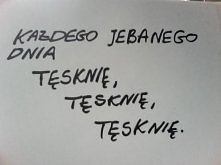 KAŻDEGO JEBANEGO
DNIA
TĘSKNIĘ,
TĘSKNIĘ,
TĘSKNIĘ.